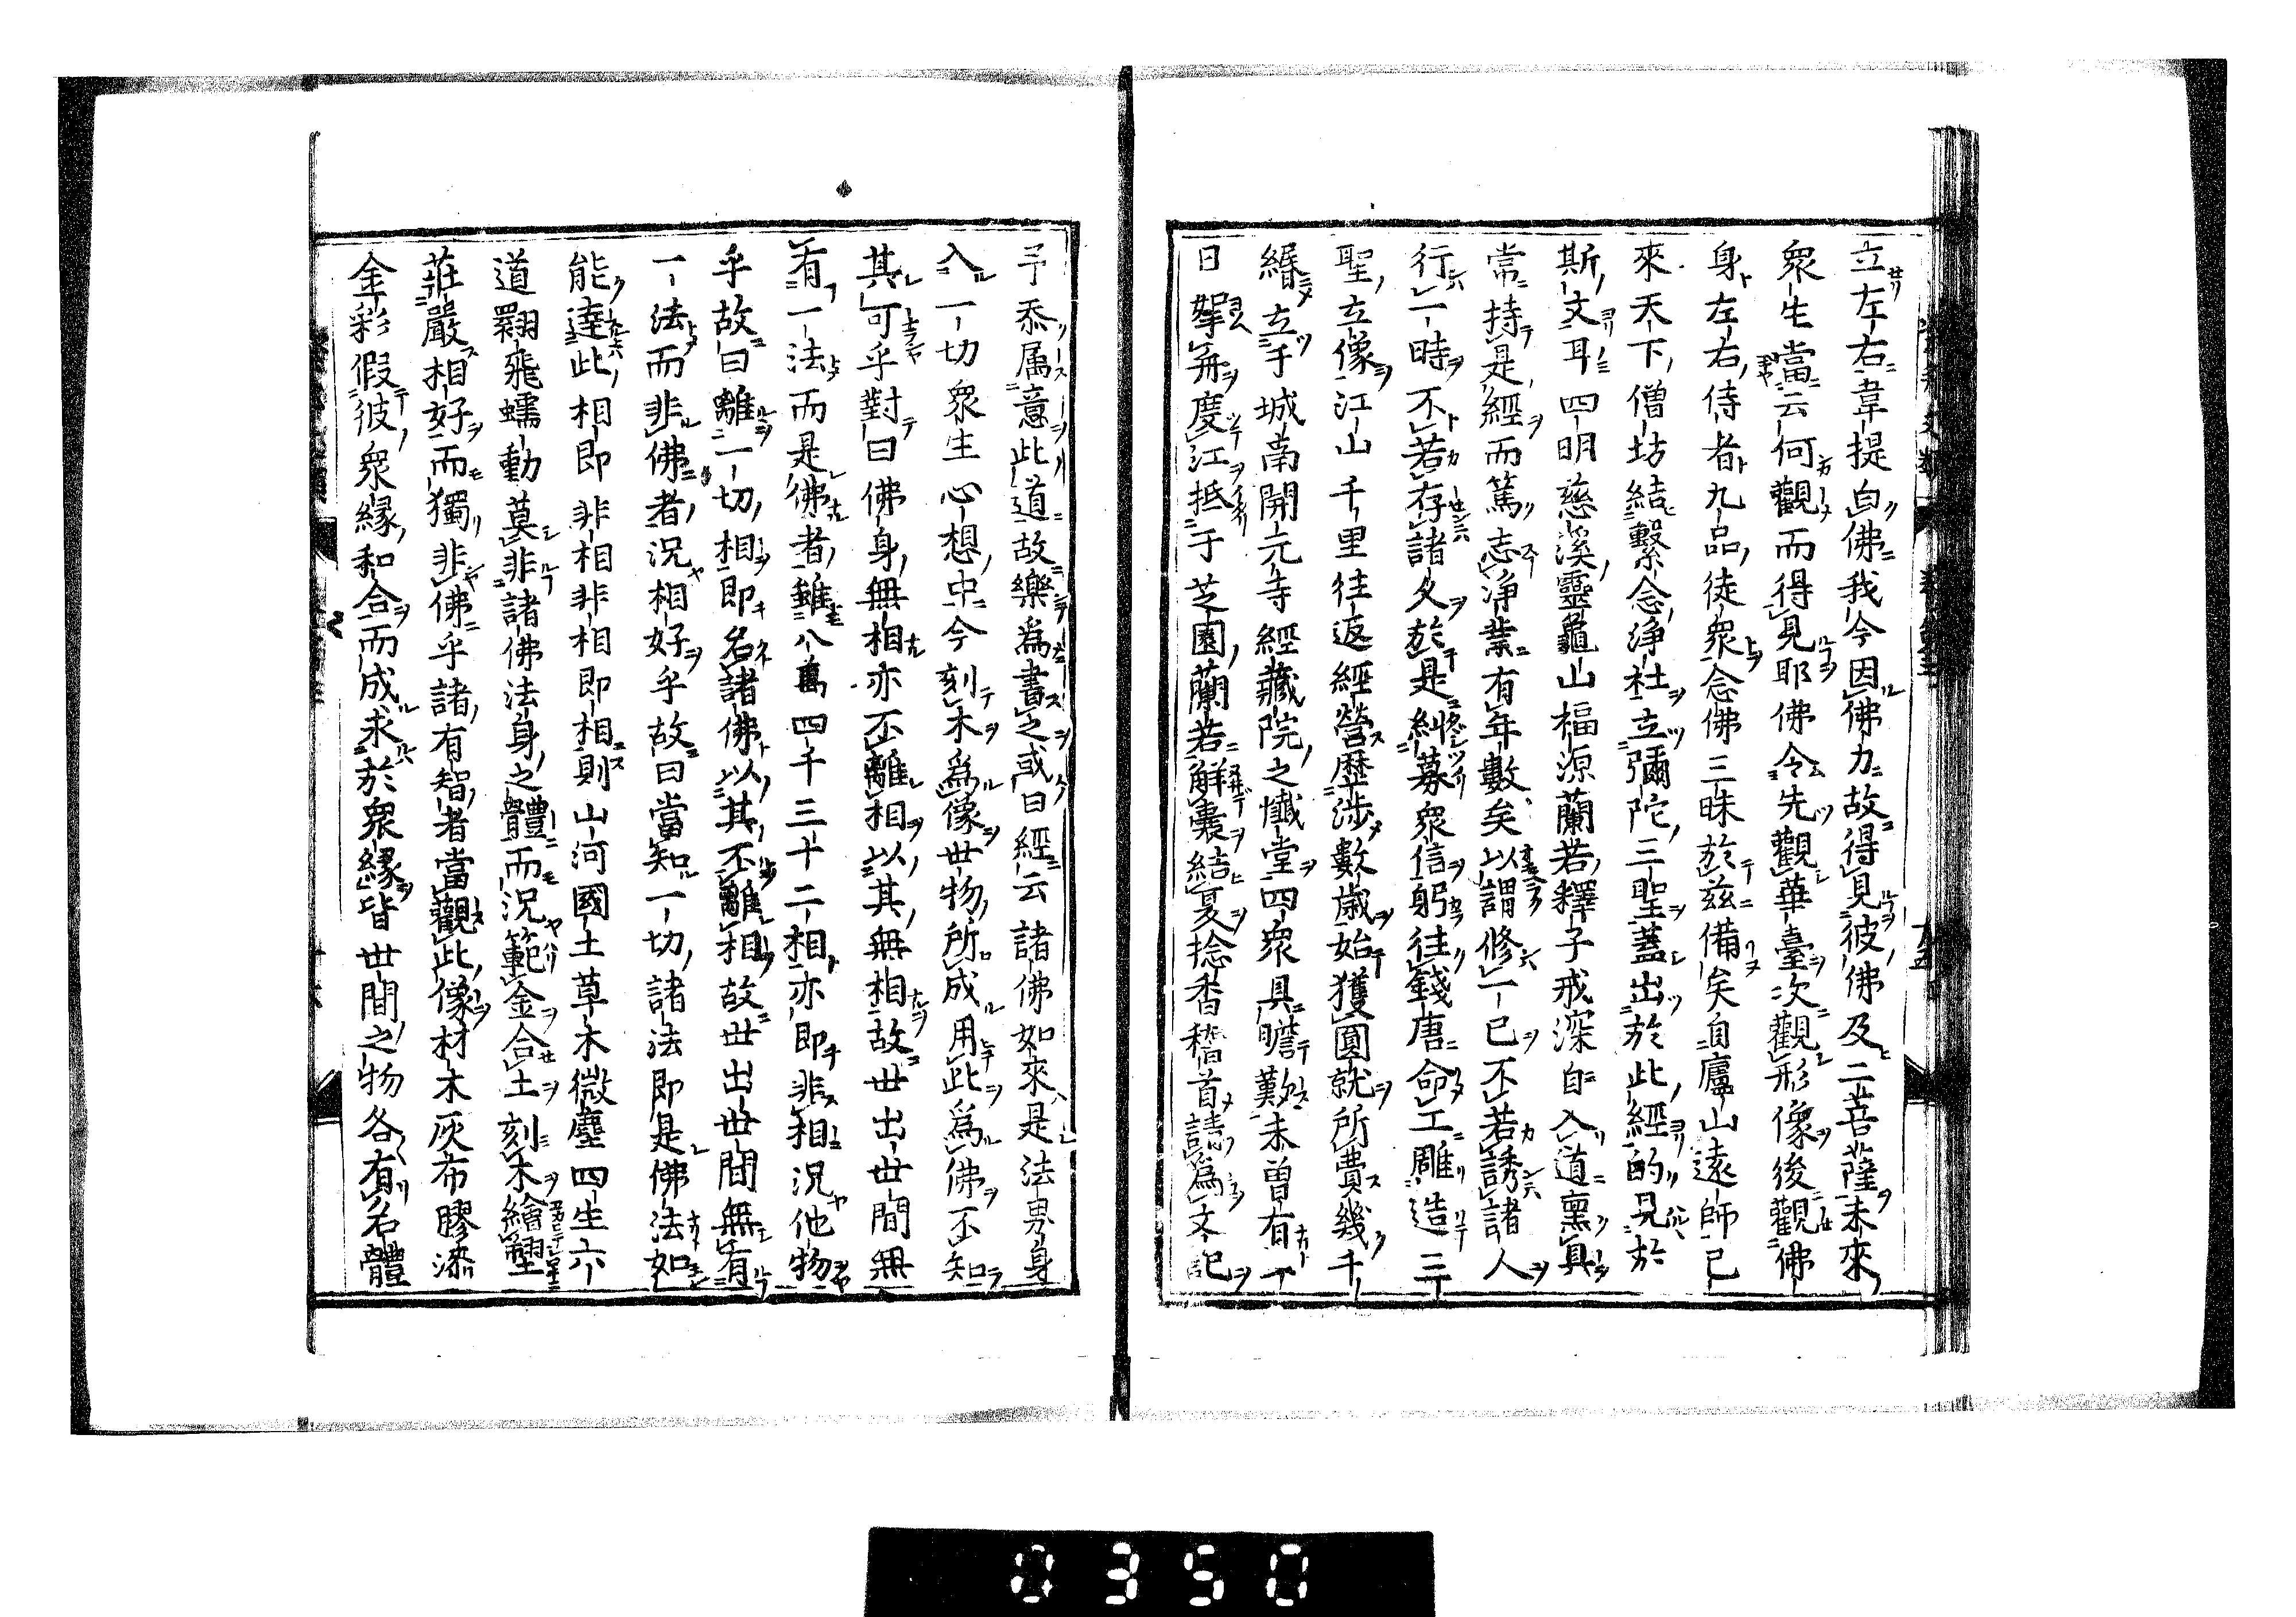 立左右韋提白佛我今因佛力故得見彼佛及二菩薩未來
衆生當云何觀而得見耶佛令先觀華臺次觀形像後觀佛
身左右侍者九品徒衆念佛三昧於玆備矣自廬山遠師已
來天下僧坊結繫念淨社立彌陀三聖蓋出於此經的見於
斯文耳四明慈溪靈龜山福源蘭若釋子戒深自入道稟具
常持是經而篤志淨業有年數矣以謂修一已不若誘諸人
行一時不若存諸久於是糾募衆信躬往錢唐命工雕造三
聖立像江山千里往返經營歷涉數歲始獲圓就所費幾千
緡立于城南開元寺經藏院之懺堂四衆具瞻歎未曾有一
日拏舟度江抵于芝園蘭若解囊結夏捻香稽首請爲文記
予忝属意此道故樂爲書之或曰經云諸佛如來是法界身
入一切衆生心想中今刻木爲像世物所成用此爲佛不知
其可乎對曰佛身無相亦不離相以其無相故世出世間無
有一法而是佛者雖八萬四千三十二相亦即非相況他物
乎故曰離一切相即名諸佛以其不離相故世出世間無有
一法而非佛者況相好乎故曰當知一切諸法即是佛法如
能達此相即非相非相即相則山河國土草木微塵四生六
道翾飛蠕動莫非諸佛法身之體而況範金合土刻木繪塑
莊嚴相好而獨非佛乎諸有智者當觀此像材木灰布膠漆
金彩假彼衆緣和合而成求於衆緣皆世間之物各有名體
0350